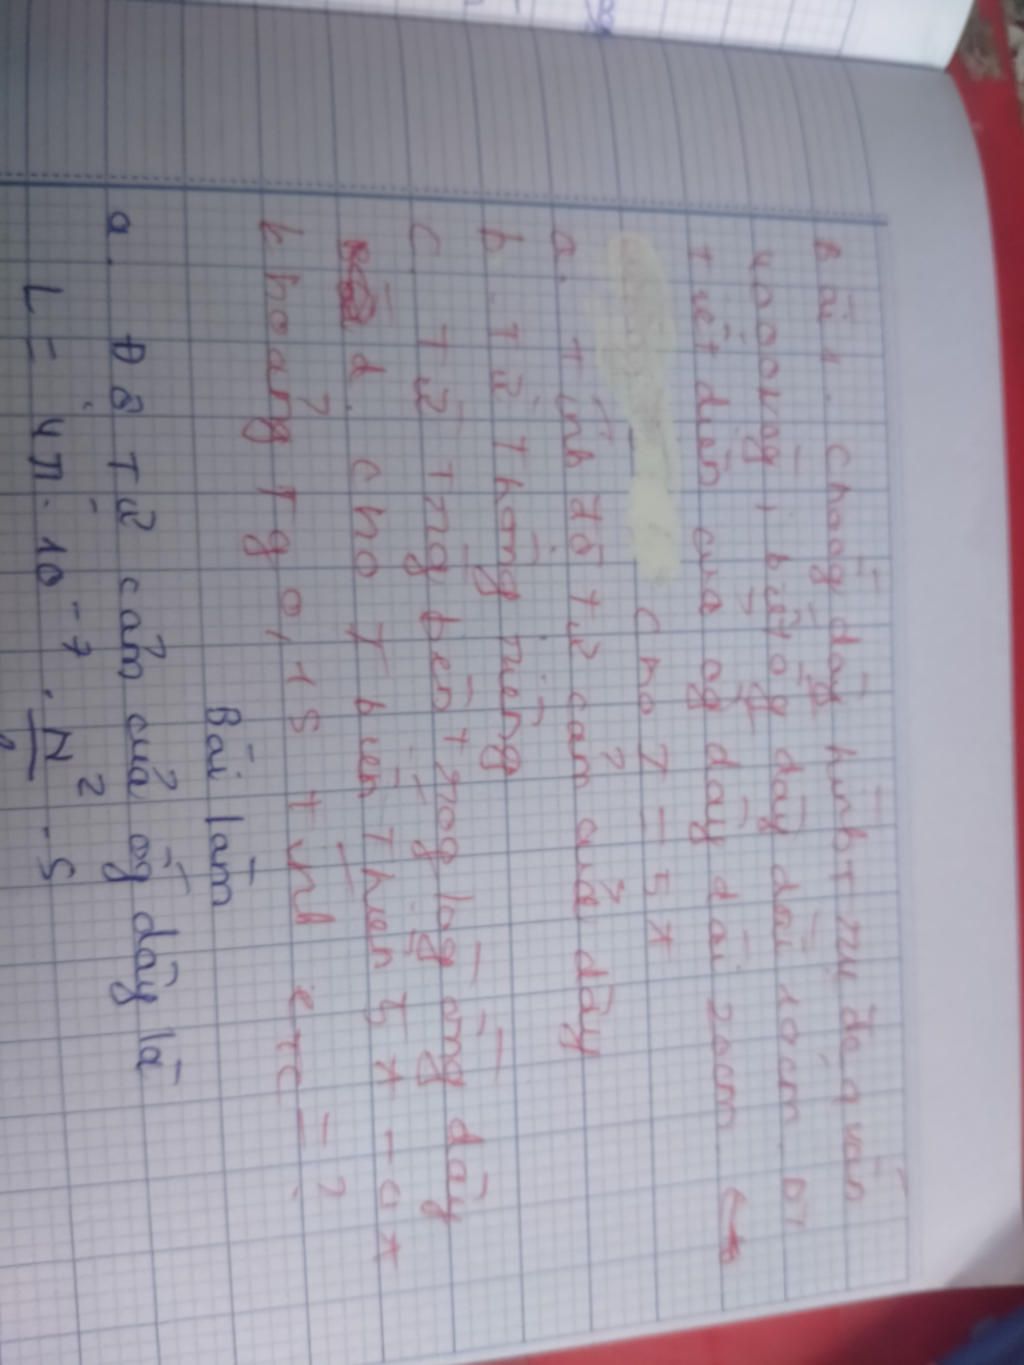 Bài 1. Choôg dây hìnht trụ đẹ q vấn
4000vòg, biết ốg dây dài 10cm. DT
tiết diện của ốg dây dài 20cm
cho I = 5A
a. tính độ tự cảm của dây
b. Từ Thông riêng
c. Từ Tng bên trog lòg ống dây
d. cho I biến Thiên 5A - 0A
khoảng Tg 0,1s tính etc = ?
Bài làm
a. Độ Tự cảm của ốg dây là
L = 4π. 10⁻⁷. N² . S